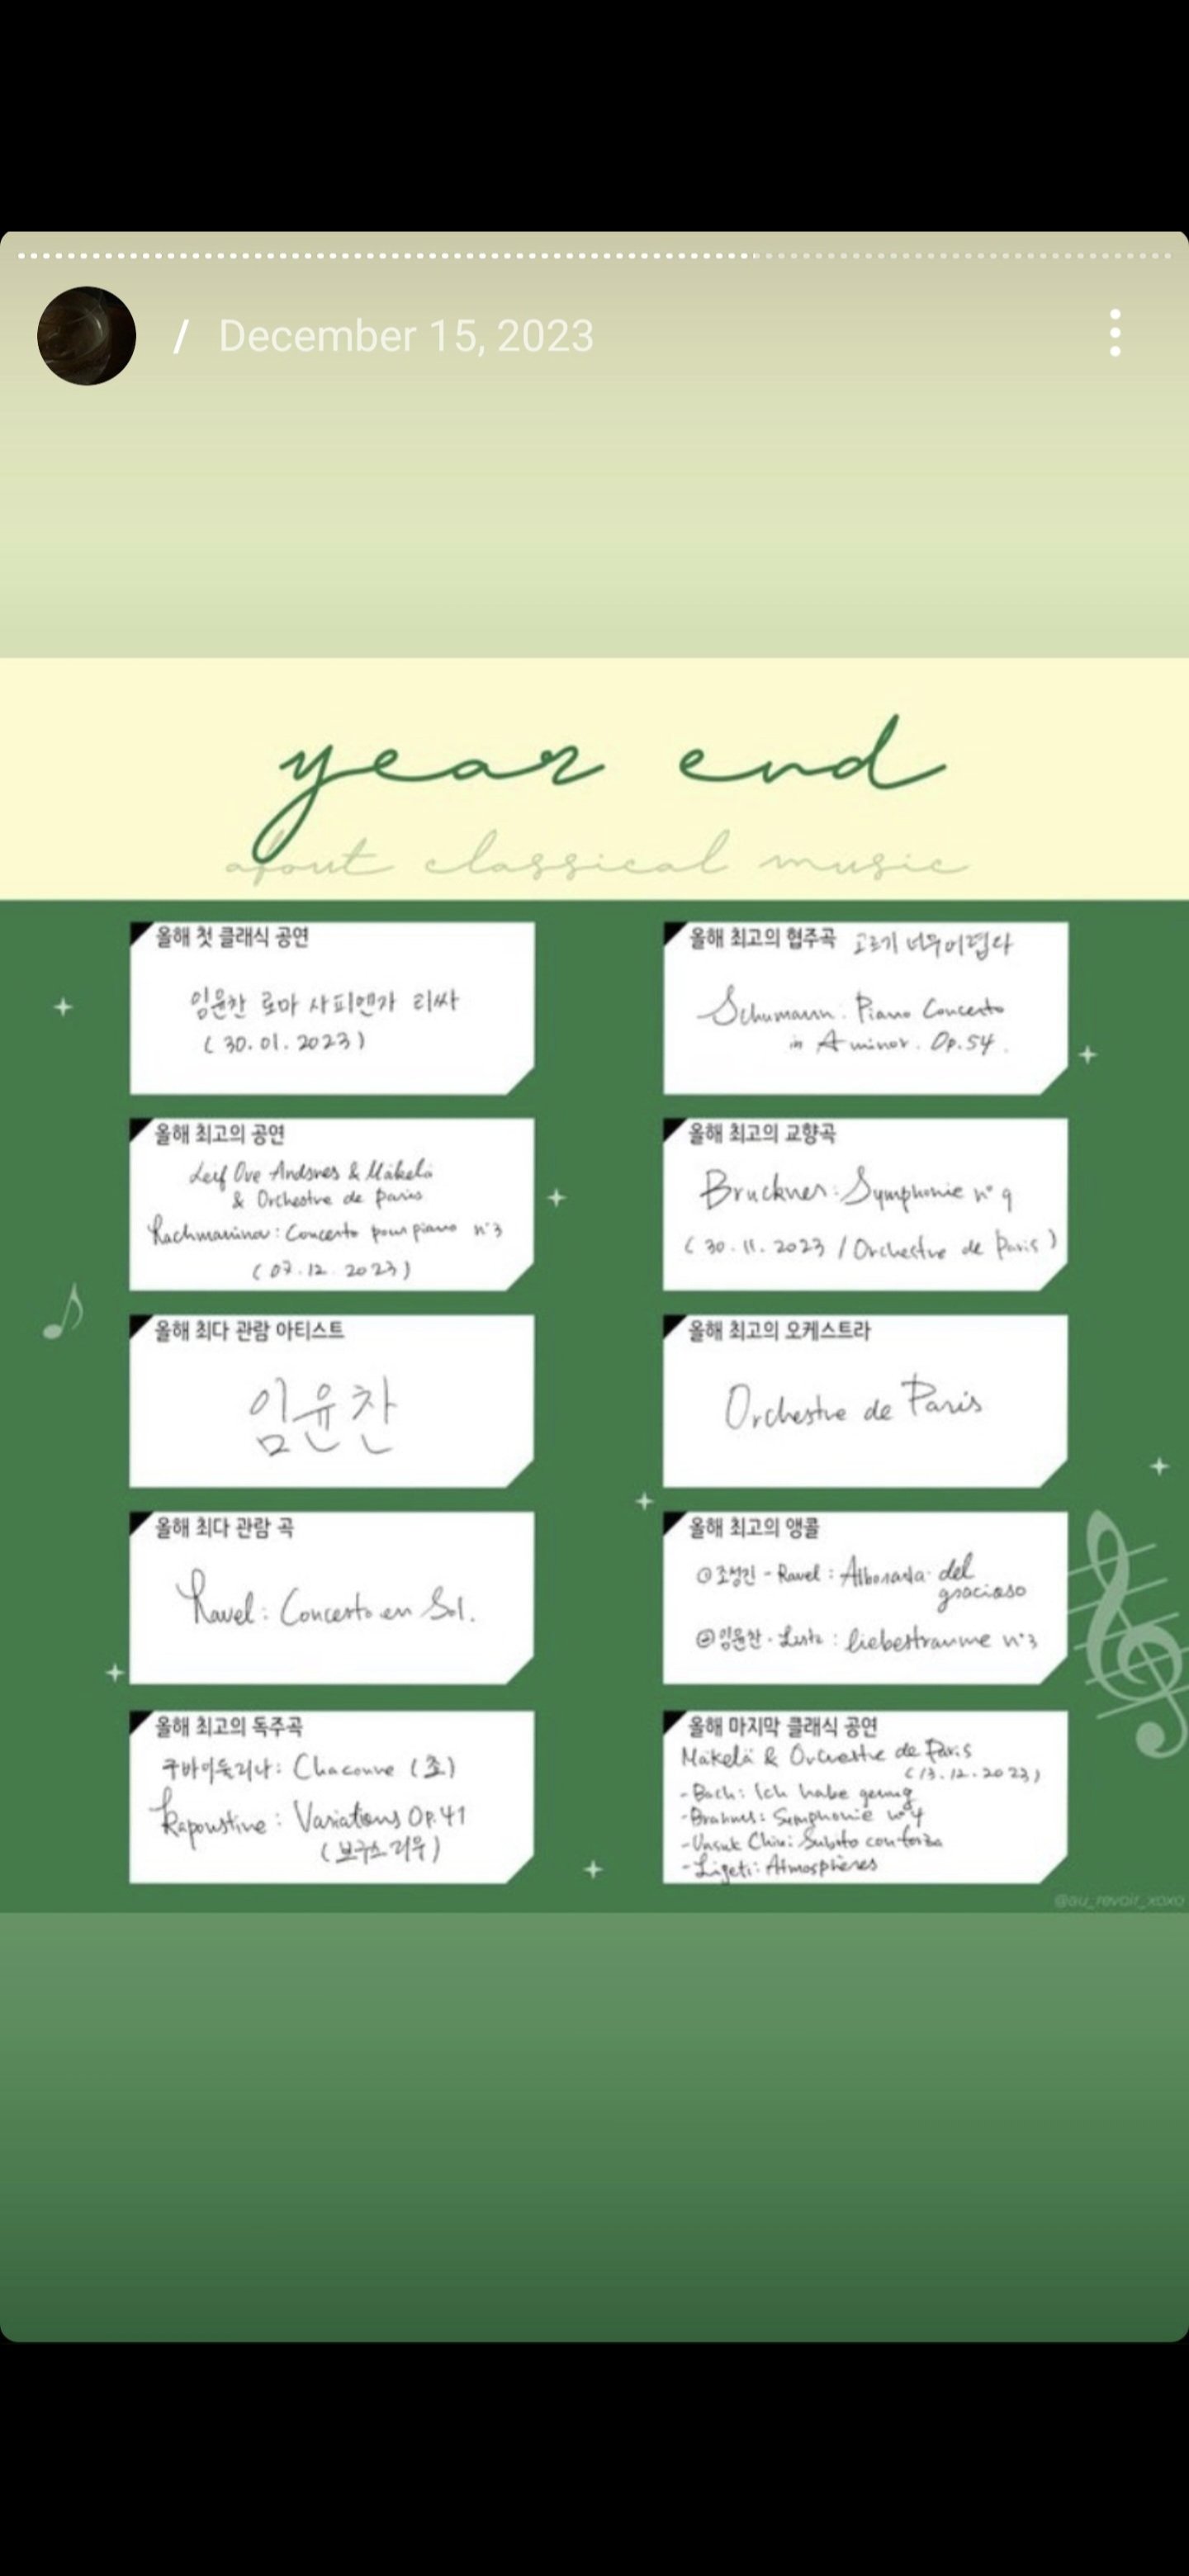 / December 15, 2023
year end
about classical music
올해 첫 클래식 공연
임윤찬 로마 사피엔자 리싸
( 30.01.2023 )
올해 최고의 협주곡 고르기 너무어렵다
Schumann: Piano Concerto
in A minor. Op.54.
올해 최고의 공연
Leif Ove Andsnes & Mäkelä
& Orchestre de Paris
Rachmaninov: Concerto pour piano n°3
( 07.12.2023 )
올해 최고의 교향곡
Bruckner: Symphonie n° 9
( 30.11.2023 / Orchestre de Paris )
올해 최다 관람 아티스트
임윤찬
올해 최고의 오케스트라
Orchestre de Paris
올해 최다 관람 곡
Ravel: Concerto en Sol.
올해 최고의 앵콜
① 조성진 - Ravel : Alborada del
gracioso
② 임윤찬 - Liszt : liebestraume n°3
올해 최고의 독주곡
구바이둘리나: Chaconne (초)
Kapoustine : Variations Op.41
(보구스 리우)
올해 마지막 클래식 공연
Mäkelä & Orchestre de Paris
(13.12.2023)
- Bach: Ich habe genug
- Brahms: Symphonie n°4
- Unsuk Chin: Subito con forza
- Ligeti: Atmosphères
@au_revoir_xoxo